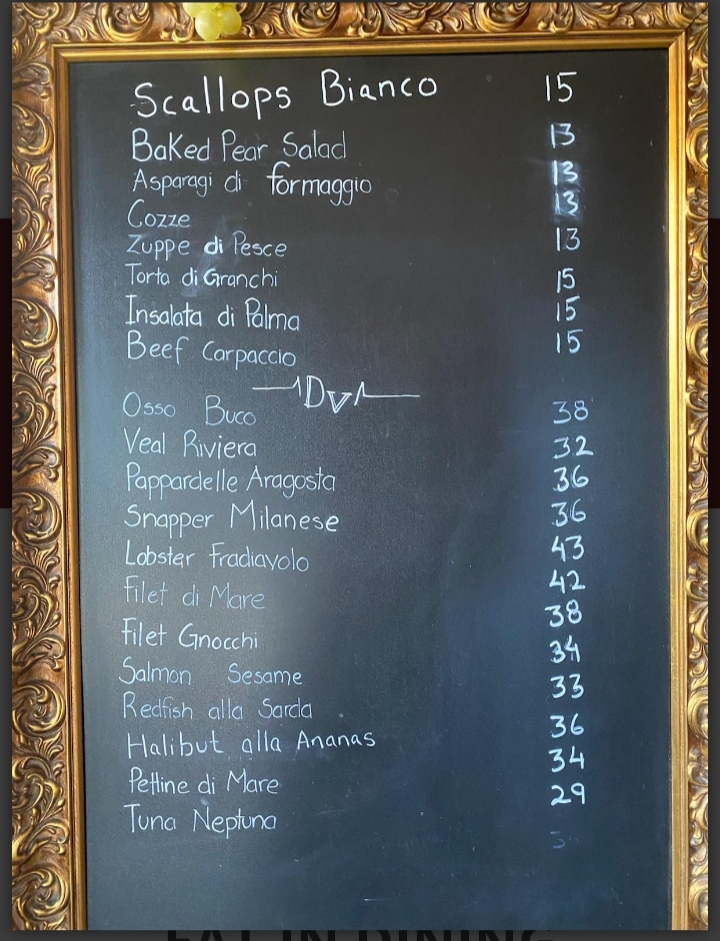 Scallops Bianco 15
Baked Pear Salad 13
Asparagi di formaggio 13
Cozze 13
Zuppe di Pesce 13
Torta di Granchi 15
Insalata di Palma 15
Beef Carpaccio 15
DV
Osso Buco 38
Veal Riviera 32
Pappardelle Aragosta 36
Snapper Milanese 36
Lobster Fradiavolo 43
Filet di Mare 42
Filet Gnocchi 38
Salmon Sesame 34
Redfish alla Sarda 33
Halibut alla Ananas 36
Pettine di Mare 34
Tuna Neptuna 29
EAT IN DINING